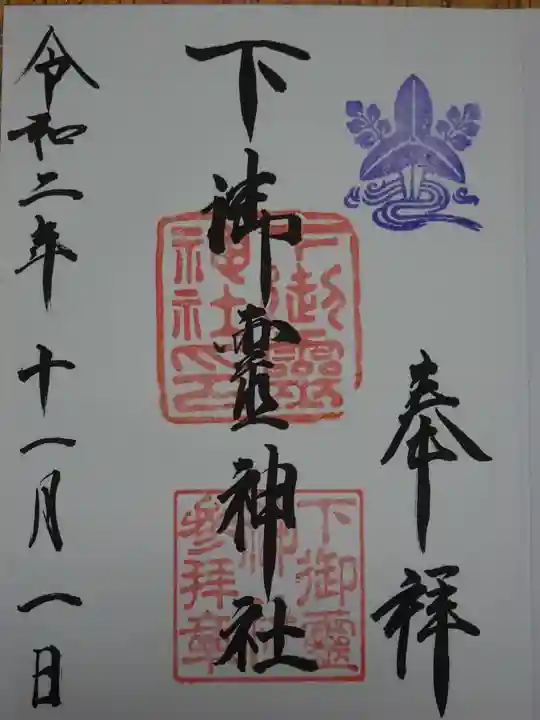 奉祥
下御靈神社
下御靈神社印
下御靈神社参拝章
令和二年十一月一日